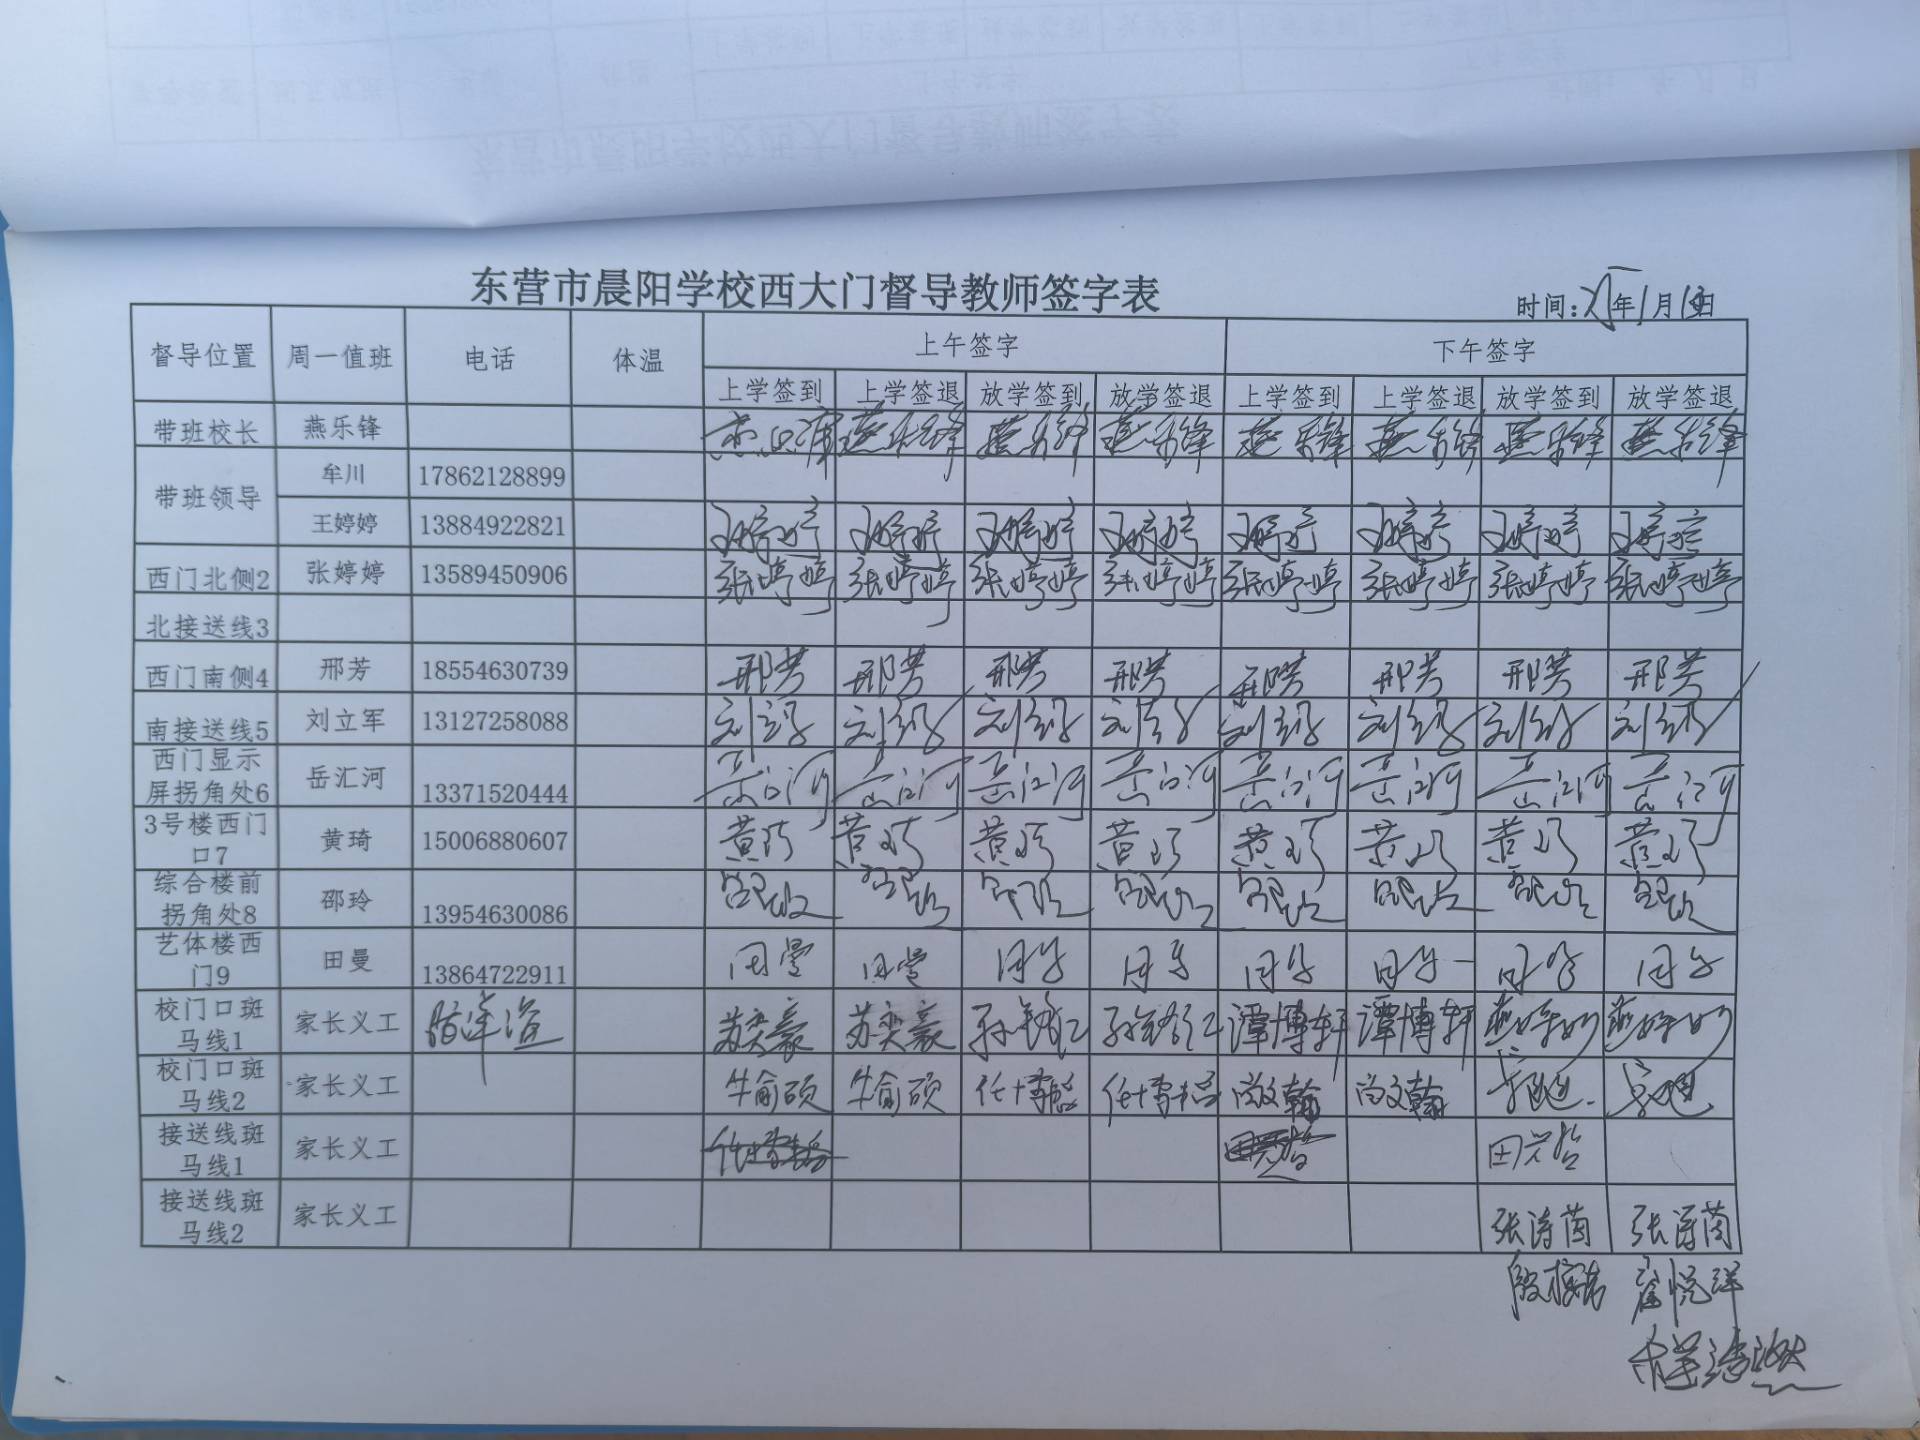 东营市晨阳学校西大门督导教师签字表
时间: 年1月 日
督导位置 周一值班 电话 体温 上午签字 下午签字
上学签到 上学签退 放学签到 放学签退 上学签到 上学签退 放学签到 放学签退
带班校长 燕乐锋 燕乐锋 燕乐锋 燕乐锋 燕乐锋 燕乐锋 燕乐锋 燕乐锋
带班领导 牟川 17862128899
王婷婷 13884922821 王婷婷 王婷婷 王婷婷 王婷婷 王婷婷 王婷婷 王婷婷 王婷婷
西门北侧2 张婷婷 13589450906 张婷婷 张婷婷 张婷婷 张婷婷 张婷婷 张婷婷 张婷婷 张婷婷
北接送线3
西门南侧4 邢芳 18554630739 邢芳 邢芳 邢芳 邢芳 邢芳 邢芳 邢芳 邢芳
南接送线5 刘立军 13127258088 刘立军 刘立军 刘立军 刘立军 刘立军 刘立军 刘立军 刘立军
西门显示
屏拐角处6 岳汇河 13371520444 岳汇河 岳汇河 岳汇河 岳汇河 岳汇河 岳汇河 岳汇河 岳汇河
3号楼西门
口7 黄琦 15006880607 黄琦 黄琦 黄琦 黄琦 黄琦 黄琦 黄琦 黄琦
综合楼前
拐角处8 邵玲 13954630086 邵玲 邵玲 邵玲 邵玲 邵玲 邵玲 邵玲 邵玲
艺体楼西
门9 田曼 13864722911 田曼 田曼 田曼 田曼 田曼 田曼 田曼 田曼
校门口斑
马线1 家长义工 苏奕豪 苏奕豪 谭博轩 谭博轩
校门口斑
马线2 家长义工 牛俞硕 牛俞硕 尚文翰 尚文翰
接送线斑
马线1 家长义工
接送线斑
马线2 家长义工 张涛茵 张涛茵